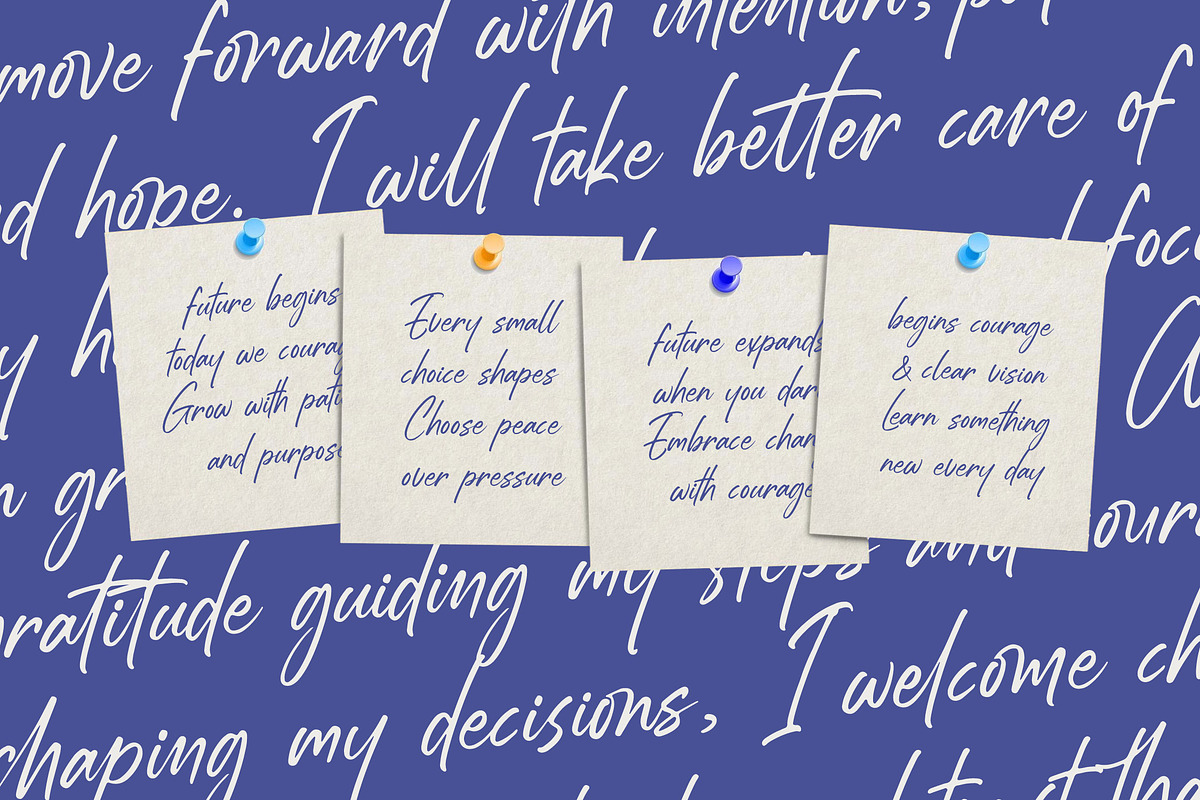 move forward with intention,
hope. I will take better care of
future begins
today we
Grow with
and purpose
Every small
choice shapes
Choose peace
over pressure
future expands
when you
Embrace
with courage
begins courage
& clear vision
Learn something
new every day
gratitude guiding my steps and
shaping my decisions, I welcome